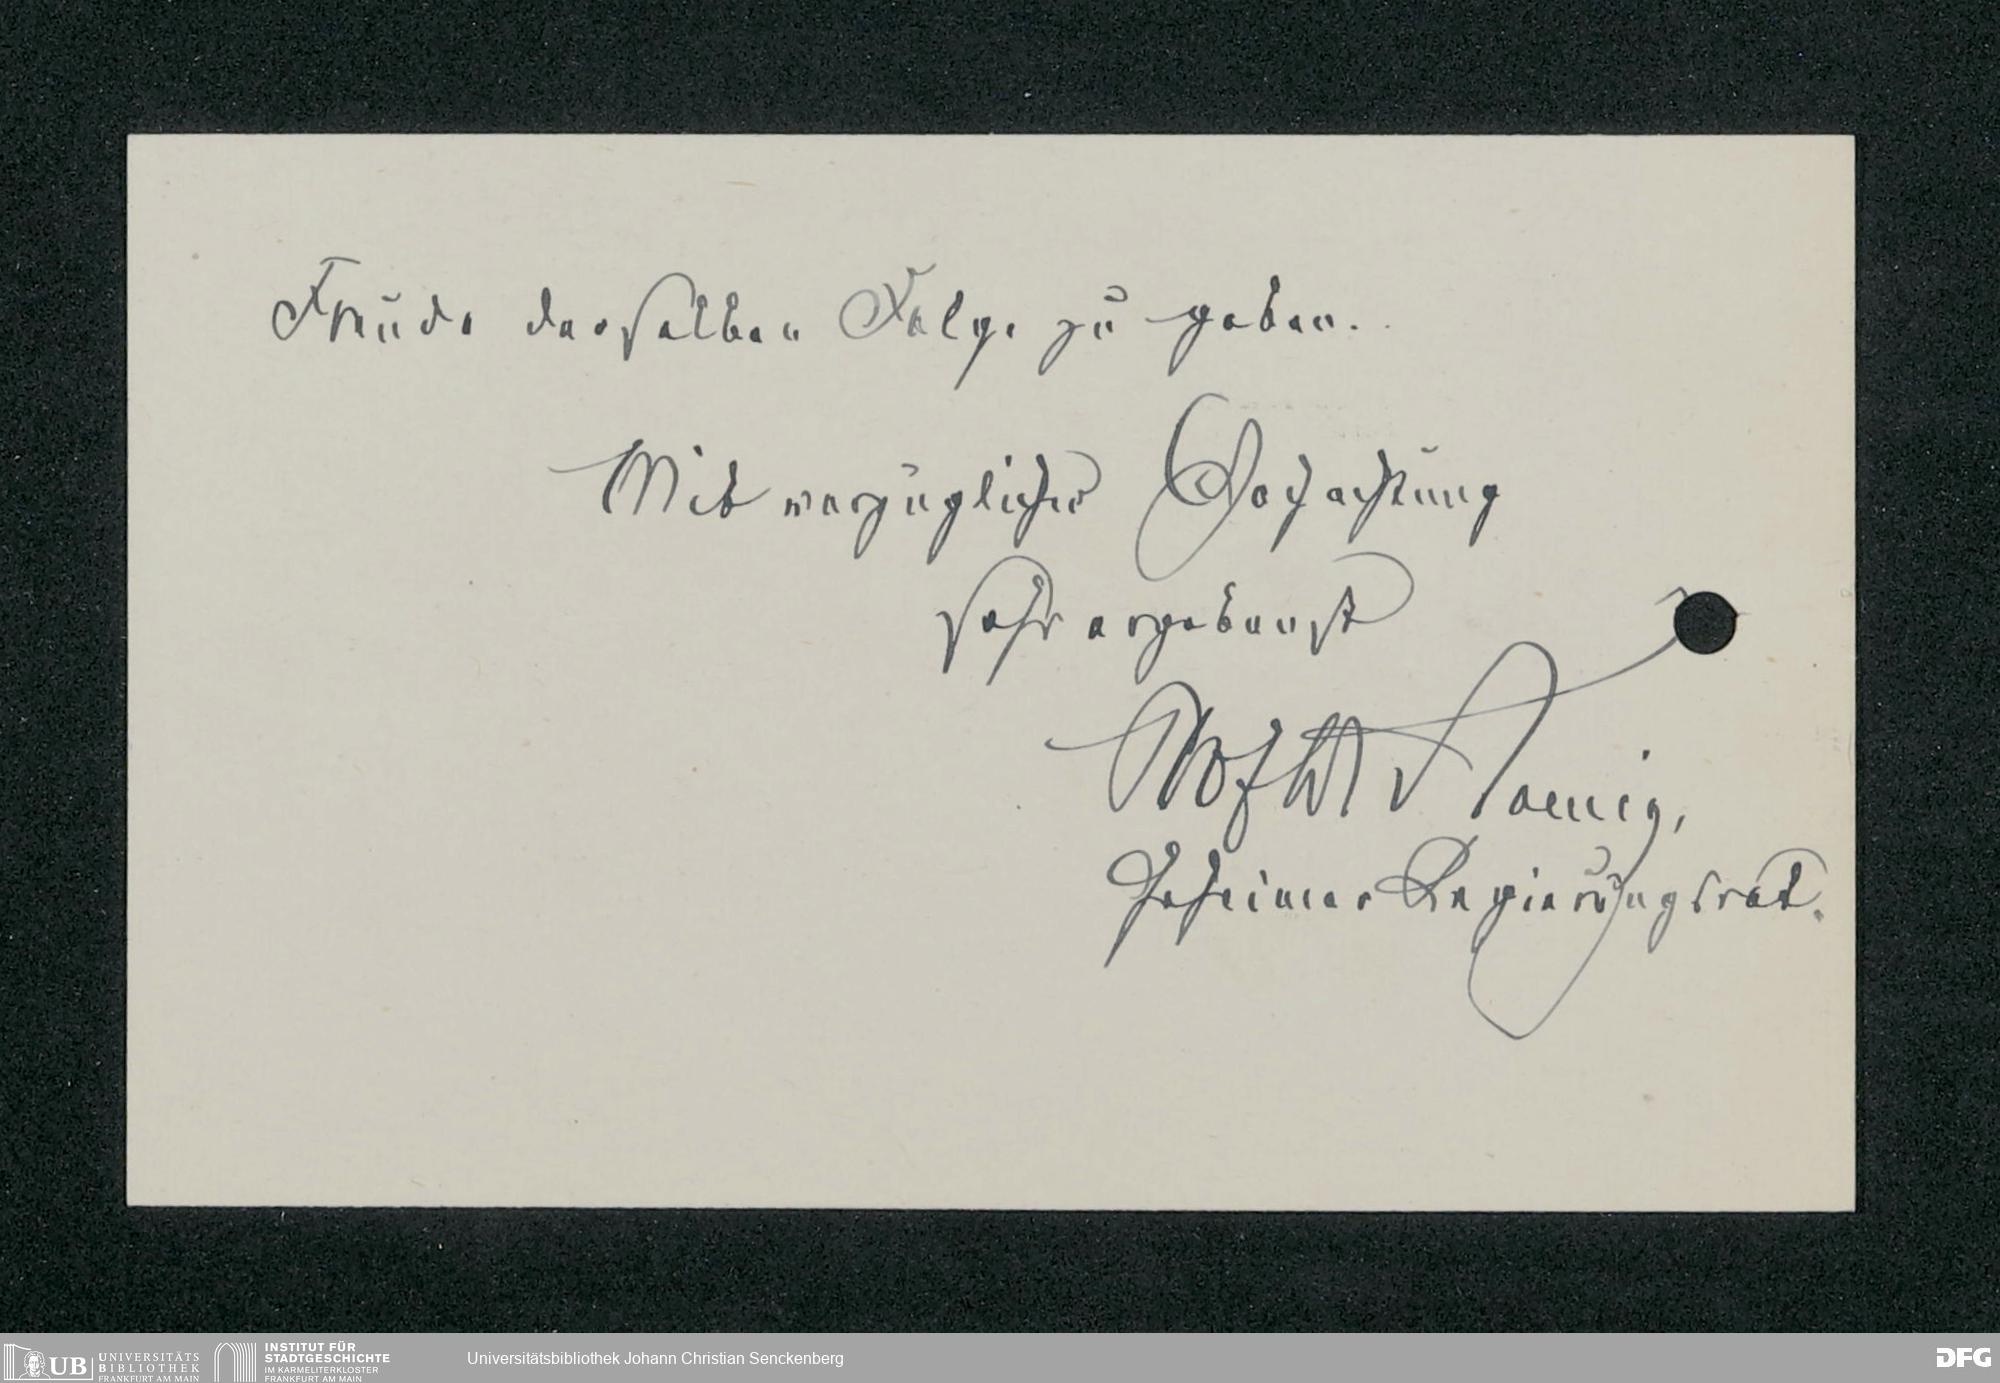 Freude derselben Folge zu geben.
Mit vorzüglicher Hochachtung
sehr ergebenst
Prof Dr Koenig,
Geheimer Regierungsrat.
UB
UNIVERSITÄTS
BIBLIOTHEK
FRANKFURT AM MAIN
INSTITUT FÜR
STADTGESCHICHTE
IM KARMELITERKLOSTER
FRANKFURT AM MAIN
Universitätsbibliothek Johann Christian Senckenberg
DFG